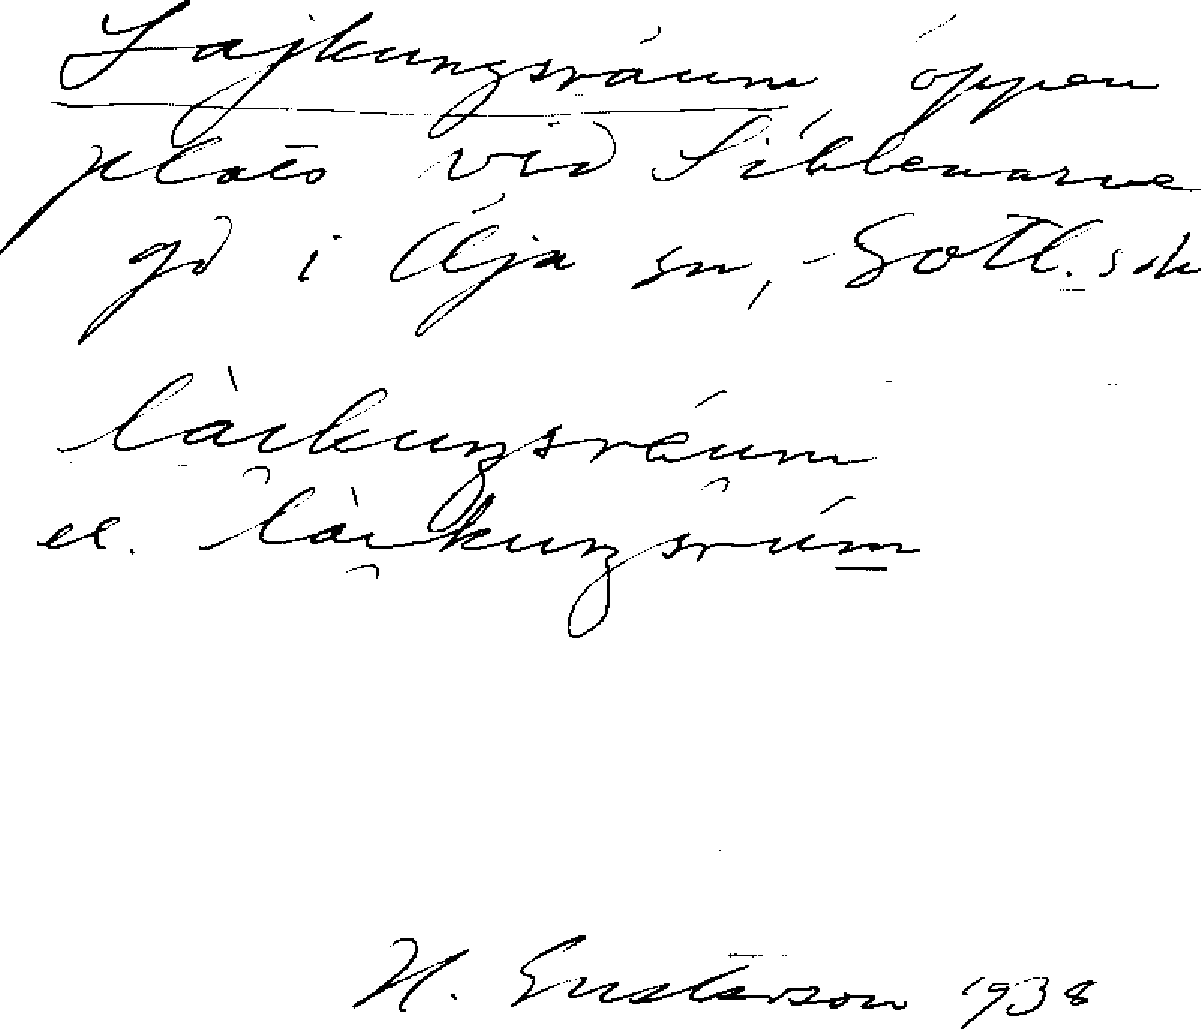 Lajkungsráum, öppen
plats vid Sibbenarve
gd i Öja sn, Gotl. sdr
làikungsráum
el. làikungsrúm
H. Gustavson 1938